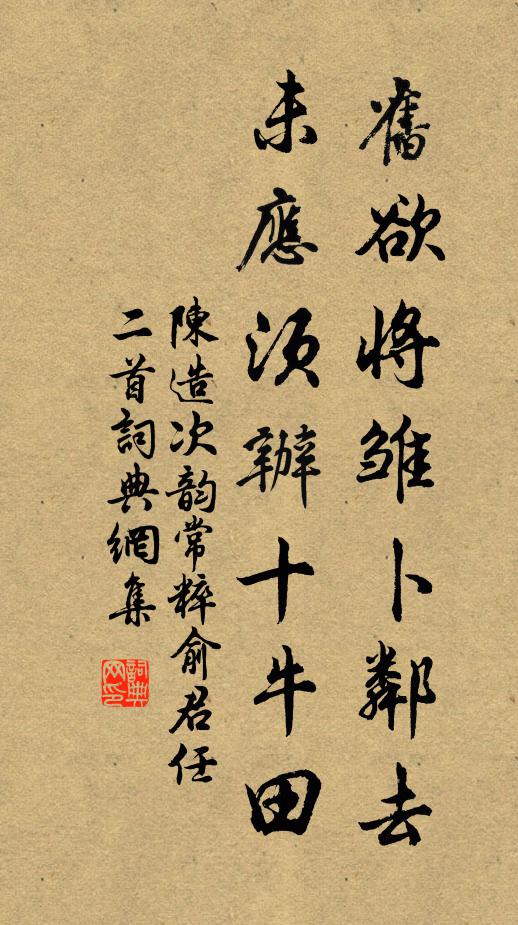 舊欲將雛卜鄰去
未應須辦十牛田
陳造次韵常粹俞君任
二首詞典網集
詞典网印